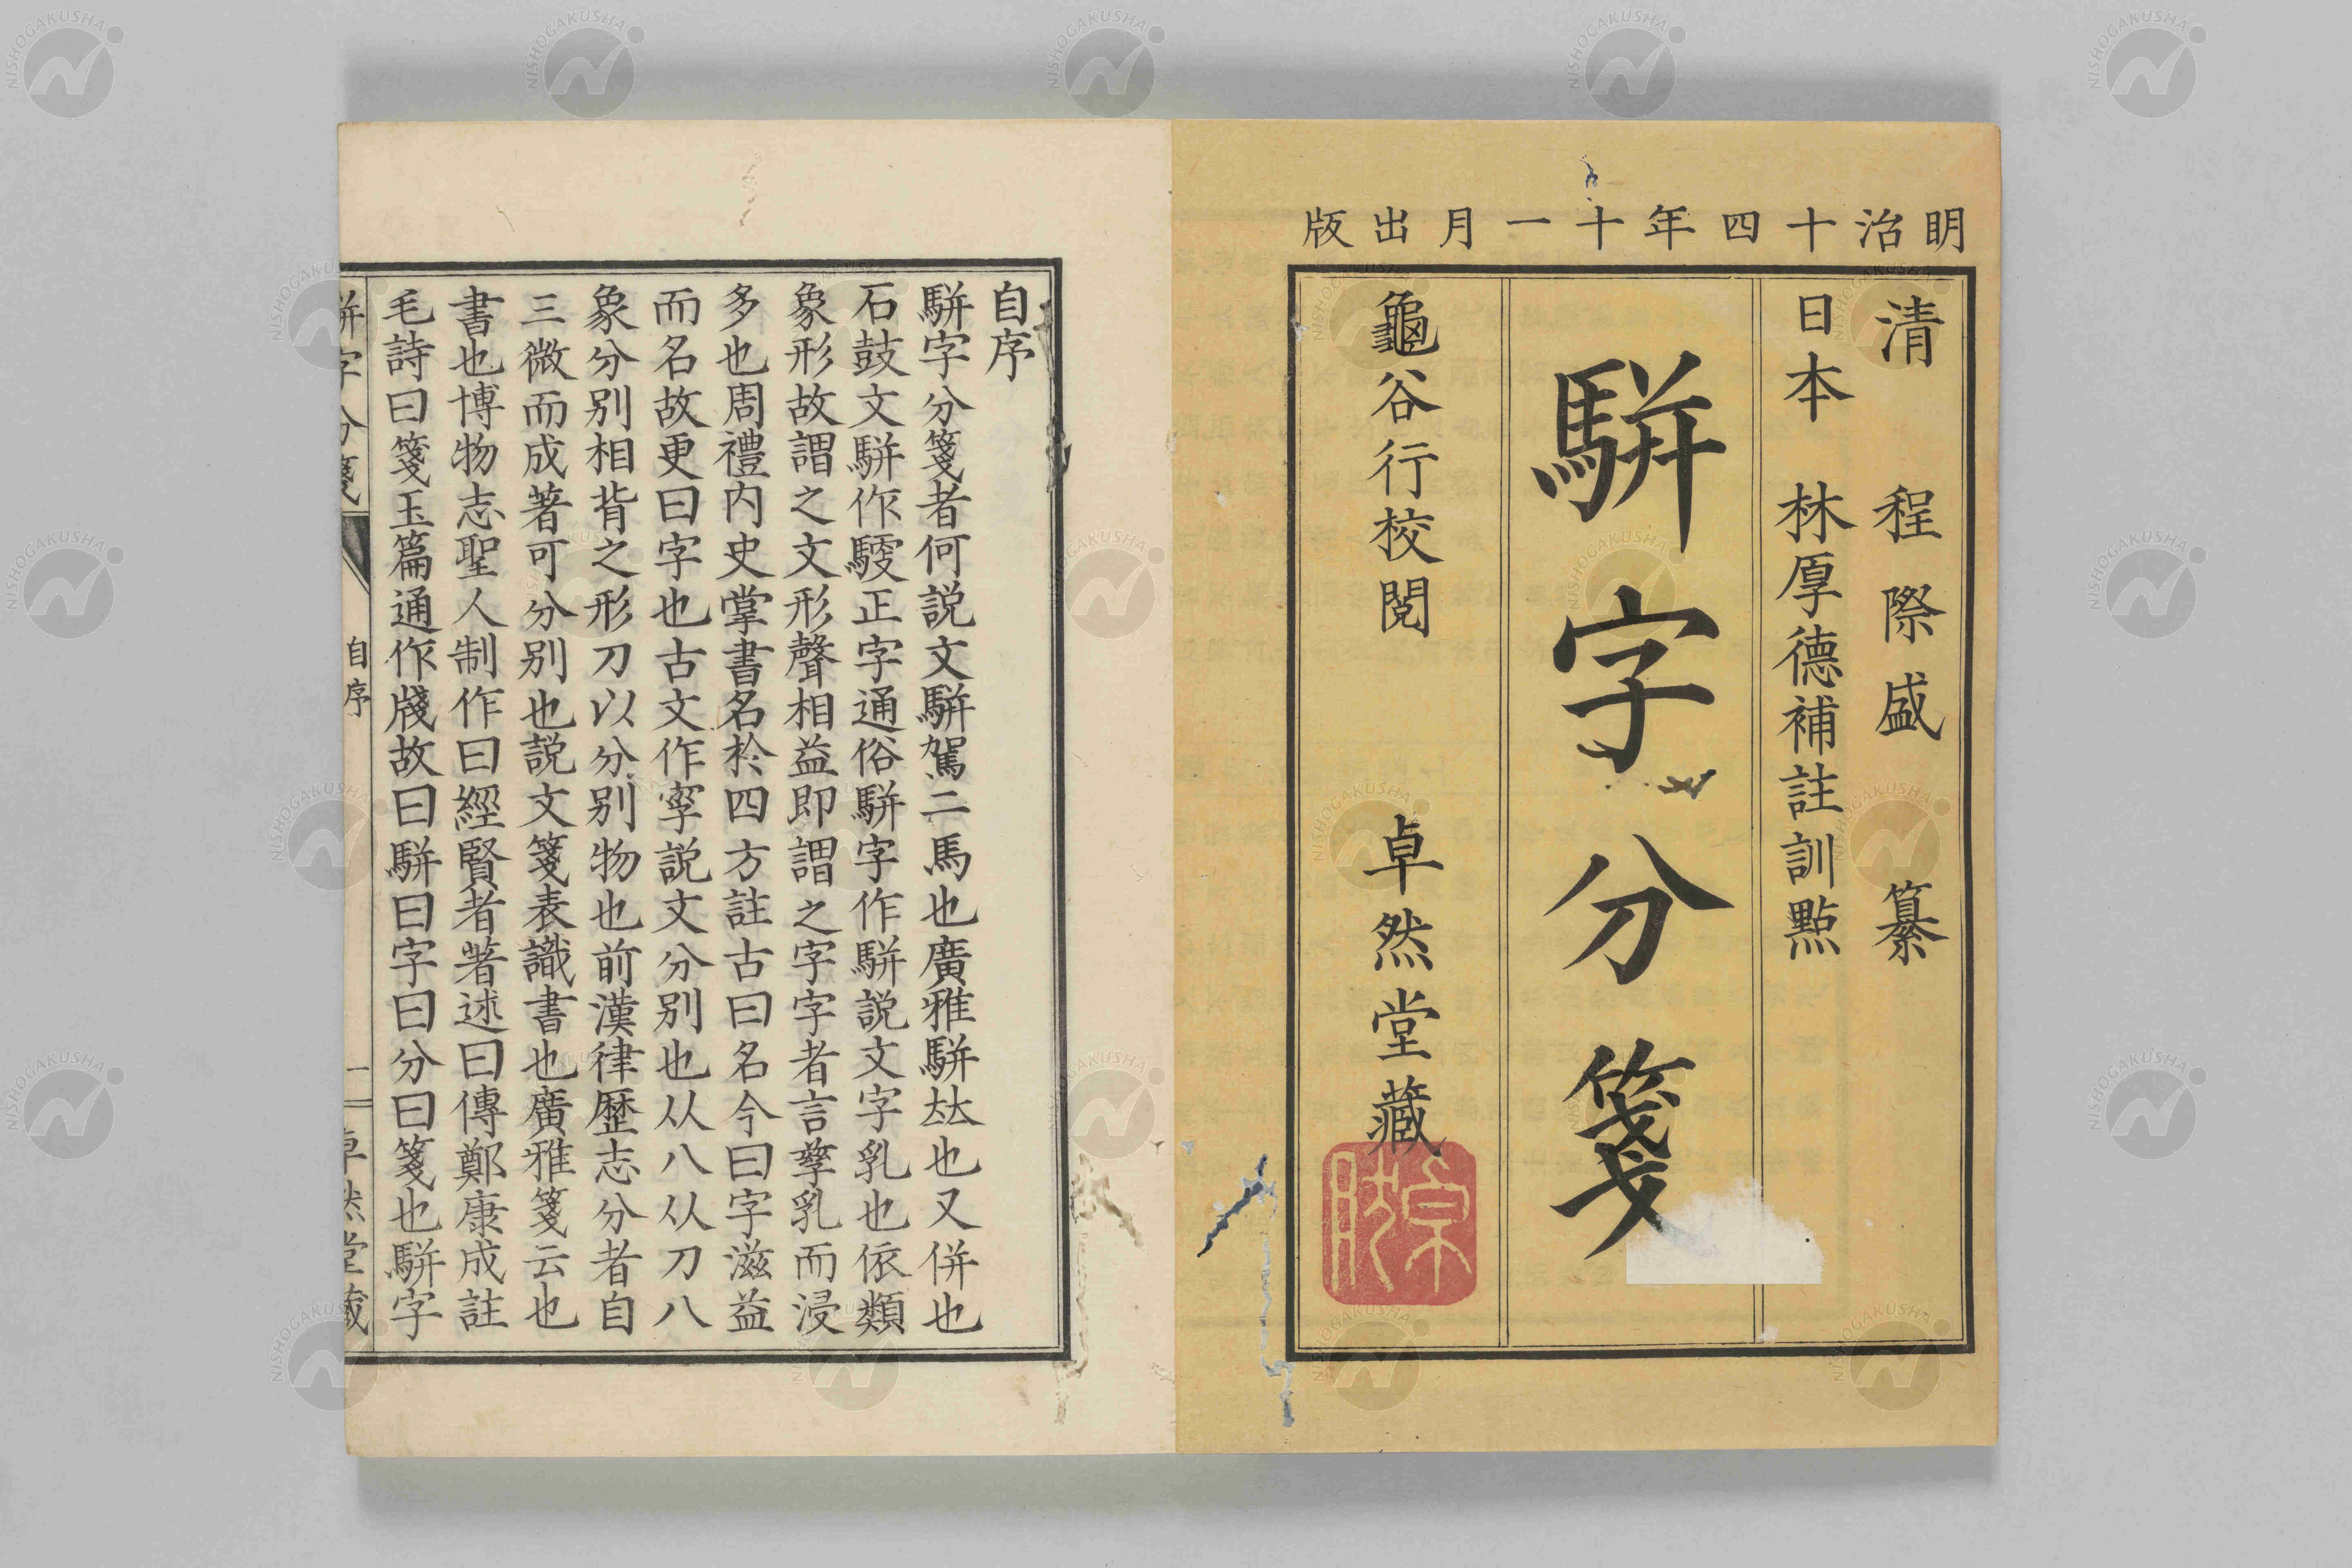 明治十四年十一月出版
清 程際盛 纂
日本 林厚德補註訓點
騈字分箋
龜谷行校閲 卓然堂藏
自序
騈字分箋者何説文騈駕二馬也廣雅騈㚘也又併也
石鼓文騈作騝正字通俗騈字作駢説文字乳也依類
象形故謂之文形聲相益即謂之字字者言孳乳而浸
多也周禮内史掌書名於四方註古曰名今曰字滋益
而名故更曰字也古文作㝊説文分别也从八从刀八
象分别相背之形刀以分别物也前漢律歷志分者自
三微而成著可分别也説文箋表識書也廣雅箋云也
書也博物志聖人制作曰經賢者著述曰傳鄭康成註
毛詩曰箋玉篇通作牋故曰騈曰字曰分曰箋也騈字
騈字分箋 自序 一 卓然堂藏
NISHOGAKUSHA